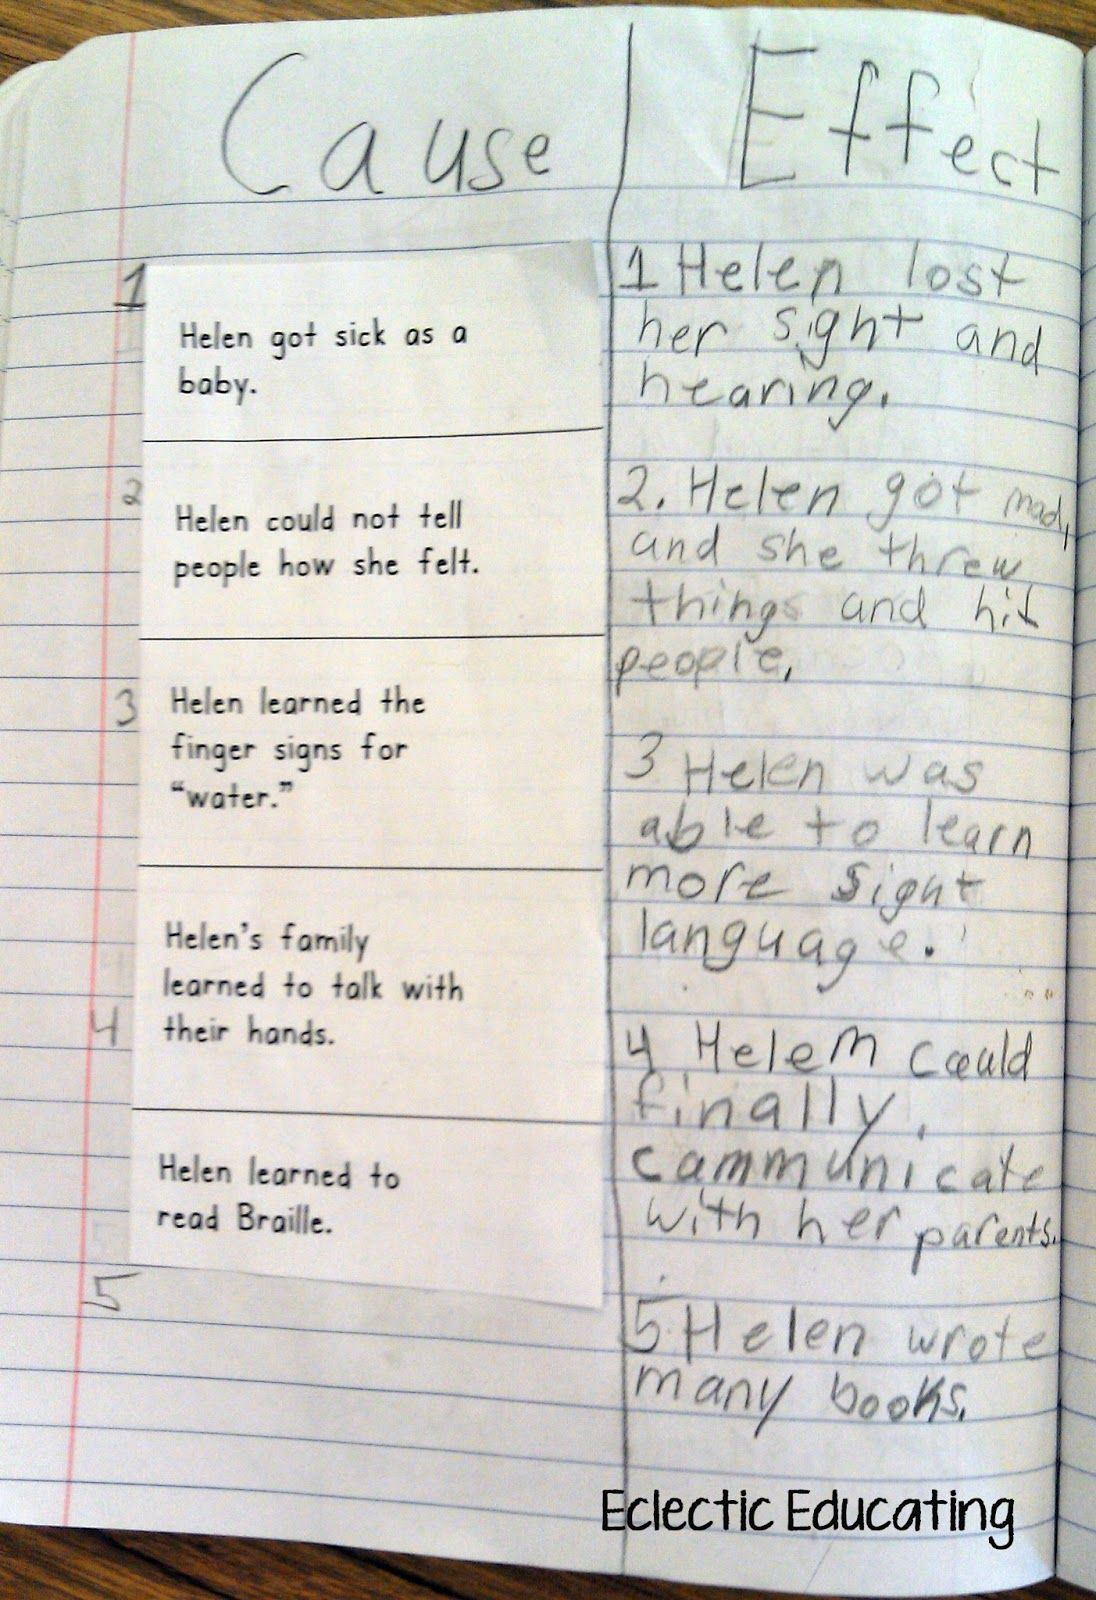 Cause | Effect
1
Helen got sick as a
baby.
2
Helen could not tell
people how she felt.
3
Helen learned the
finger signs for
“water.”
4
Helen's family
learned to talk with
their hands.
5
Helen learned to
read Braille.
1 Helen lost
her sight and
hearing.
2. Helen got mad,
and she threw
things and hit
people.
3 Helen was
able to learn
more sight
language.
4 Helem could
finally,
cammunicate
with her parents.
5. Helen wrote
many books.
Eclectic Educating